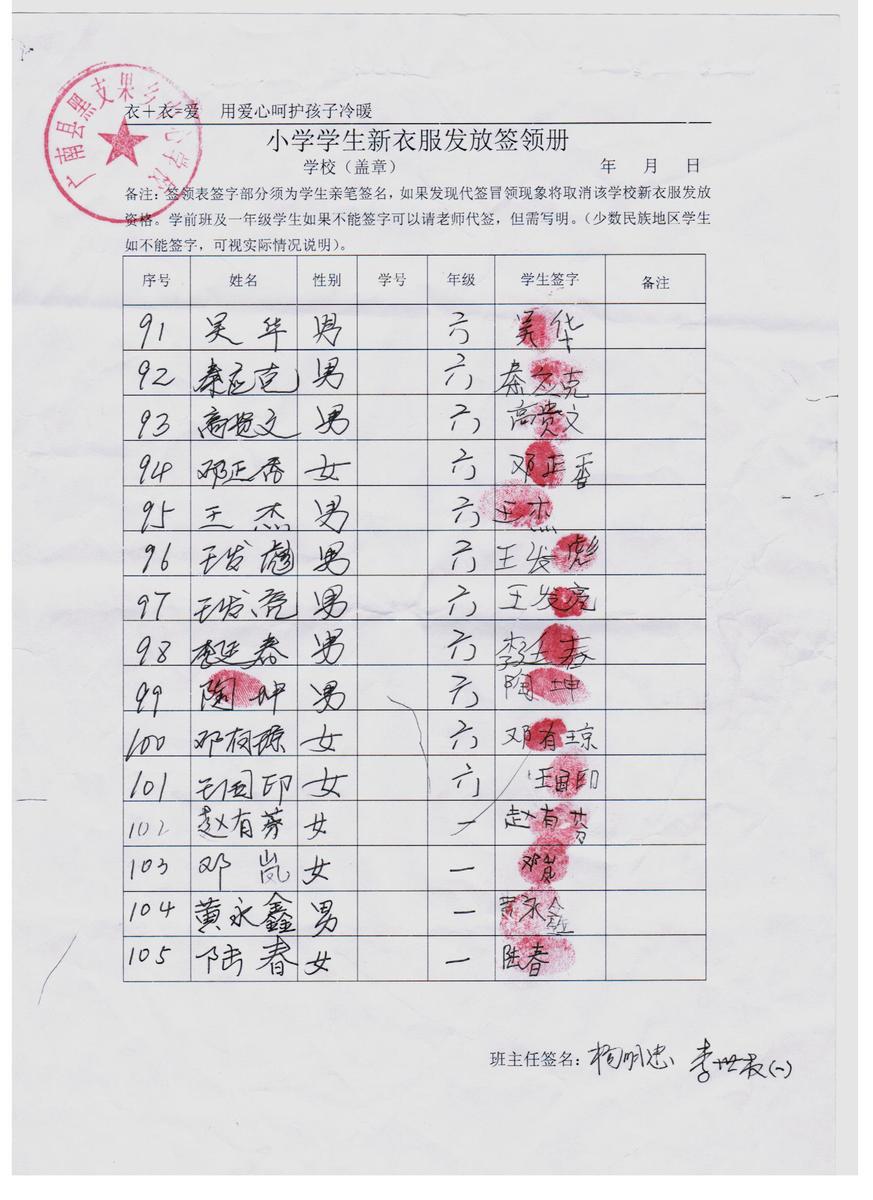 广南县黑支果乡中心学校
衣+衣=爱 用爱心呵护孩子冷暖
小学学生新衣服发放签领册
学校（盖章） 年 月 日
备注：签领表签字部分须为学生亲笔签名，如果发现代签冒领现象将取消该学校新衣服发放
资格。学前班及一年级学生如果不能签字可以请老师代签，但需写明。（少数民族地区学生
如不能签字，可视实际情况说明）。
序号 姓名 性别 学号 年级 学生签字 备注
91 吴华 男 六 吴华
92 秦应克 男 六 秦应克
93 高贵文 男 六 高贵文
94 邓正香 女 六 邓正香
95 王杰 男 六 王杰
96 王发彪 男 六 王发彪
97 王发亮 男 六 王发亮
98 李廷春 男 六 李廷春
99 陶坤 男 六 陶坤
100 邓有琼 女 六 邓有琼
101 王国印 女 六 王国印
102 赵有芬 女 一 赵有芬
103 邓岚 女 一 邓岚
104 黄永鑫 男 一 黄永鑫
105 陆春 女 一 陆春
班主任签名：杨明忠 李世友(一)